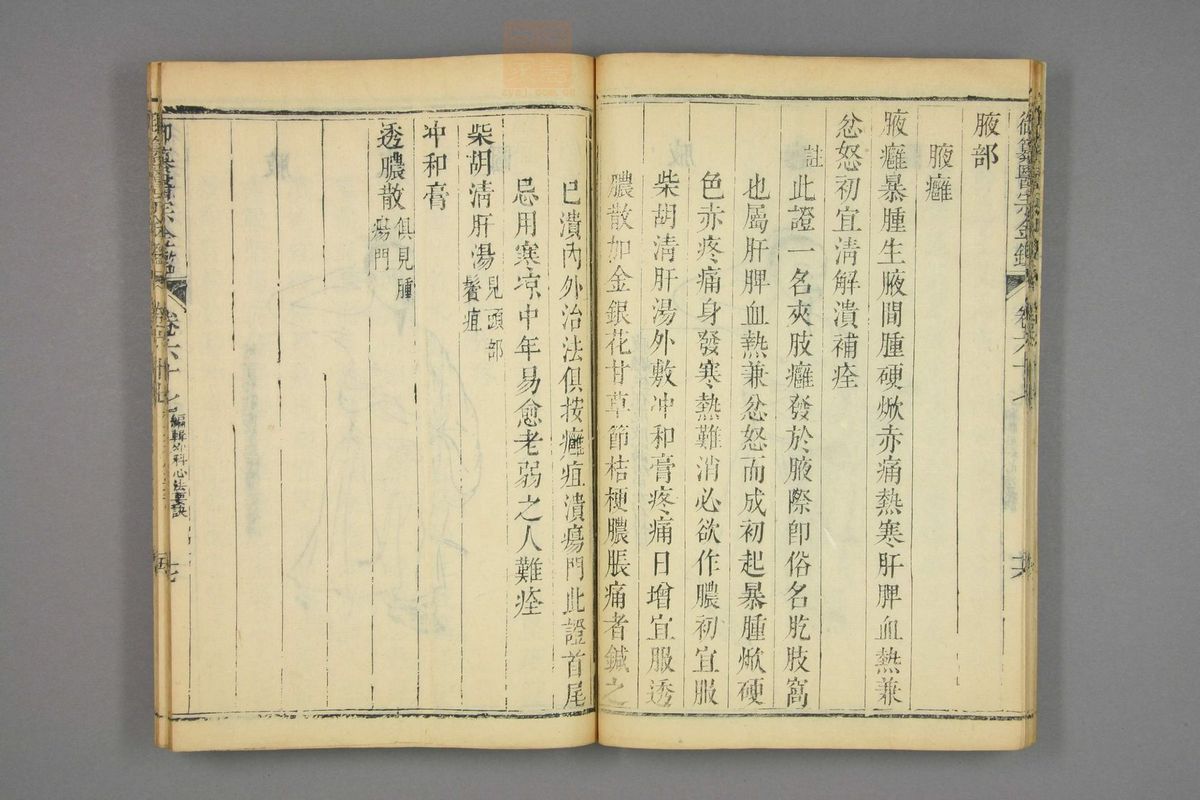 御纂醫宗金鑑
腋部
腋癰
腋癰暴腫生腋間腫硬焮赤痛熱寒肝脾血熱兼
忿怒初宜淸解潰補痊
註此證一名夾肢癰發於腋際卽俗名肐肢窩
也屬肝脾血熱兼忿怒而成初起暴腫焮硬
色赤疼痛身發寒熱難消必欲作膿初宜服
柴胡淸肝湯外敷冲和膏疼痛日增宜服透
膿散加金銀花甘草節桔梗膿脹痛者鍼之
已潰內外治法俱按癰疽潰瘍門此證首尾
忌用寒凉中年易愈老弱之人難痊
柴胡淸肝湯見頭部鬢疽
冲和膏
透膿散俱見腫瘍門
卷六十七 編輯外科心法要訣